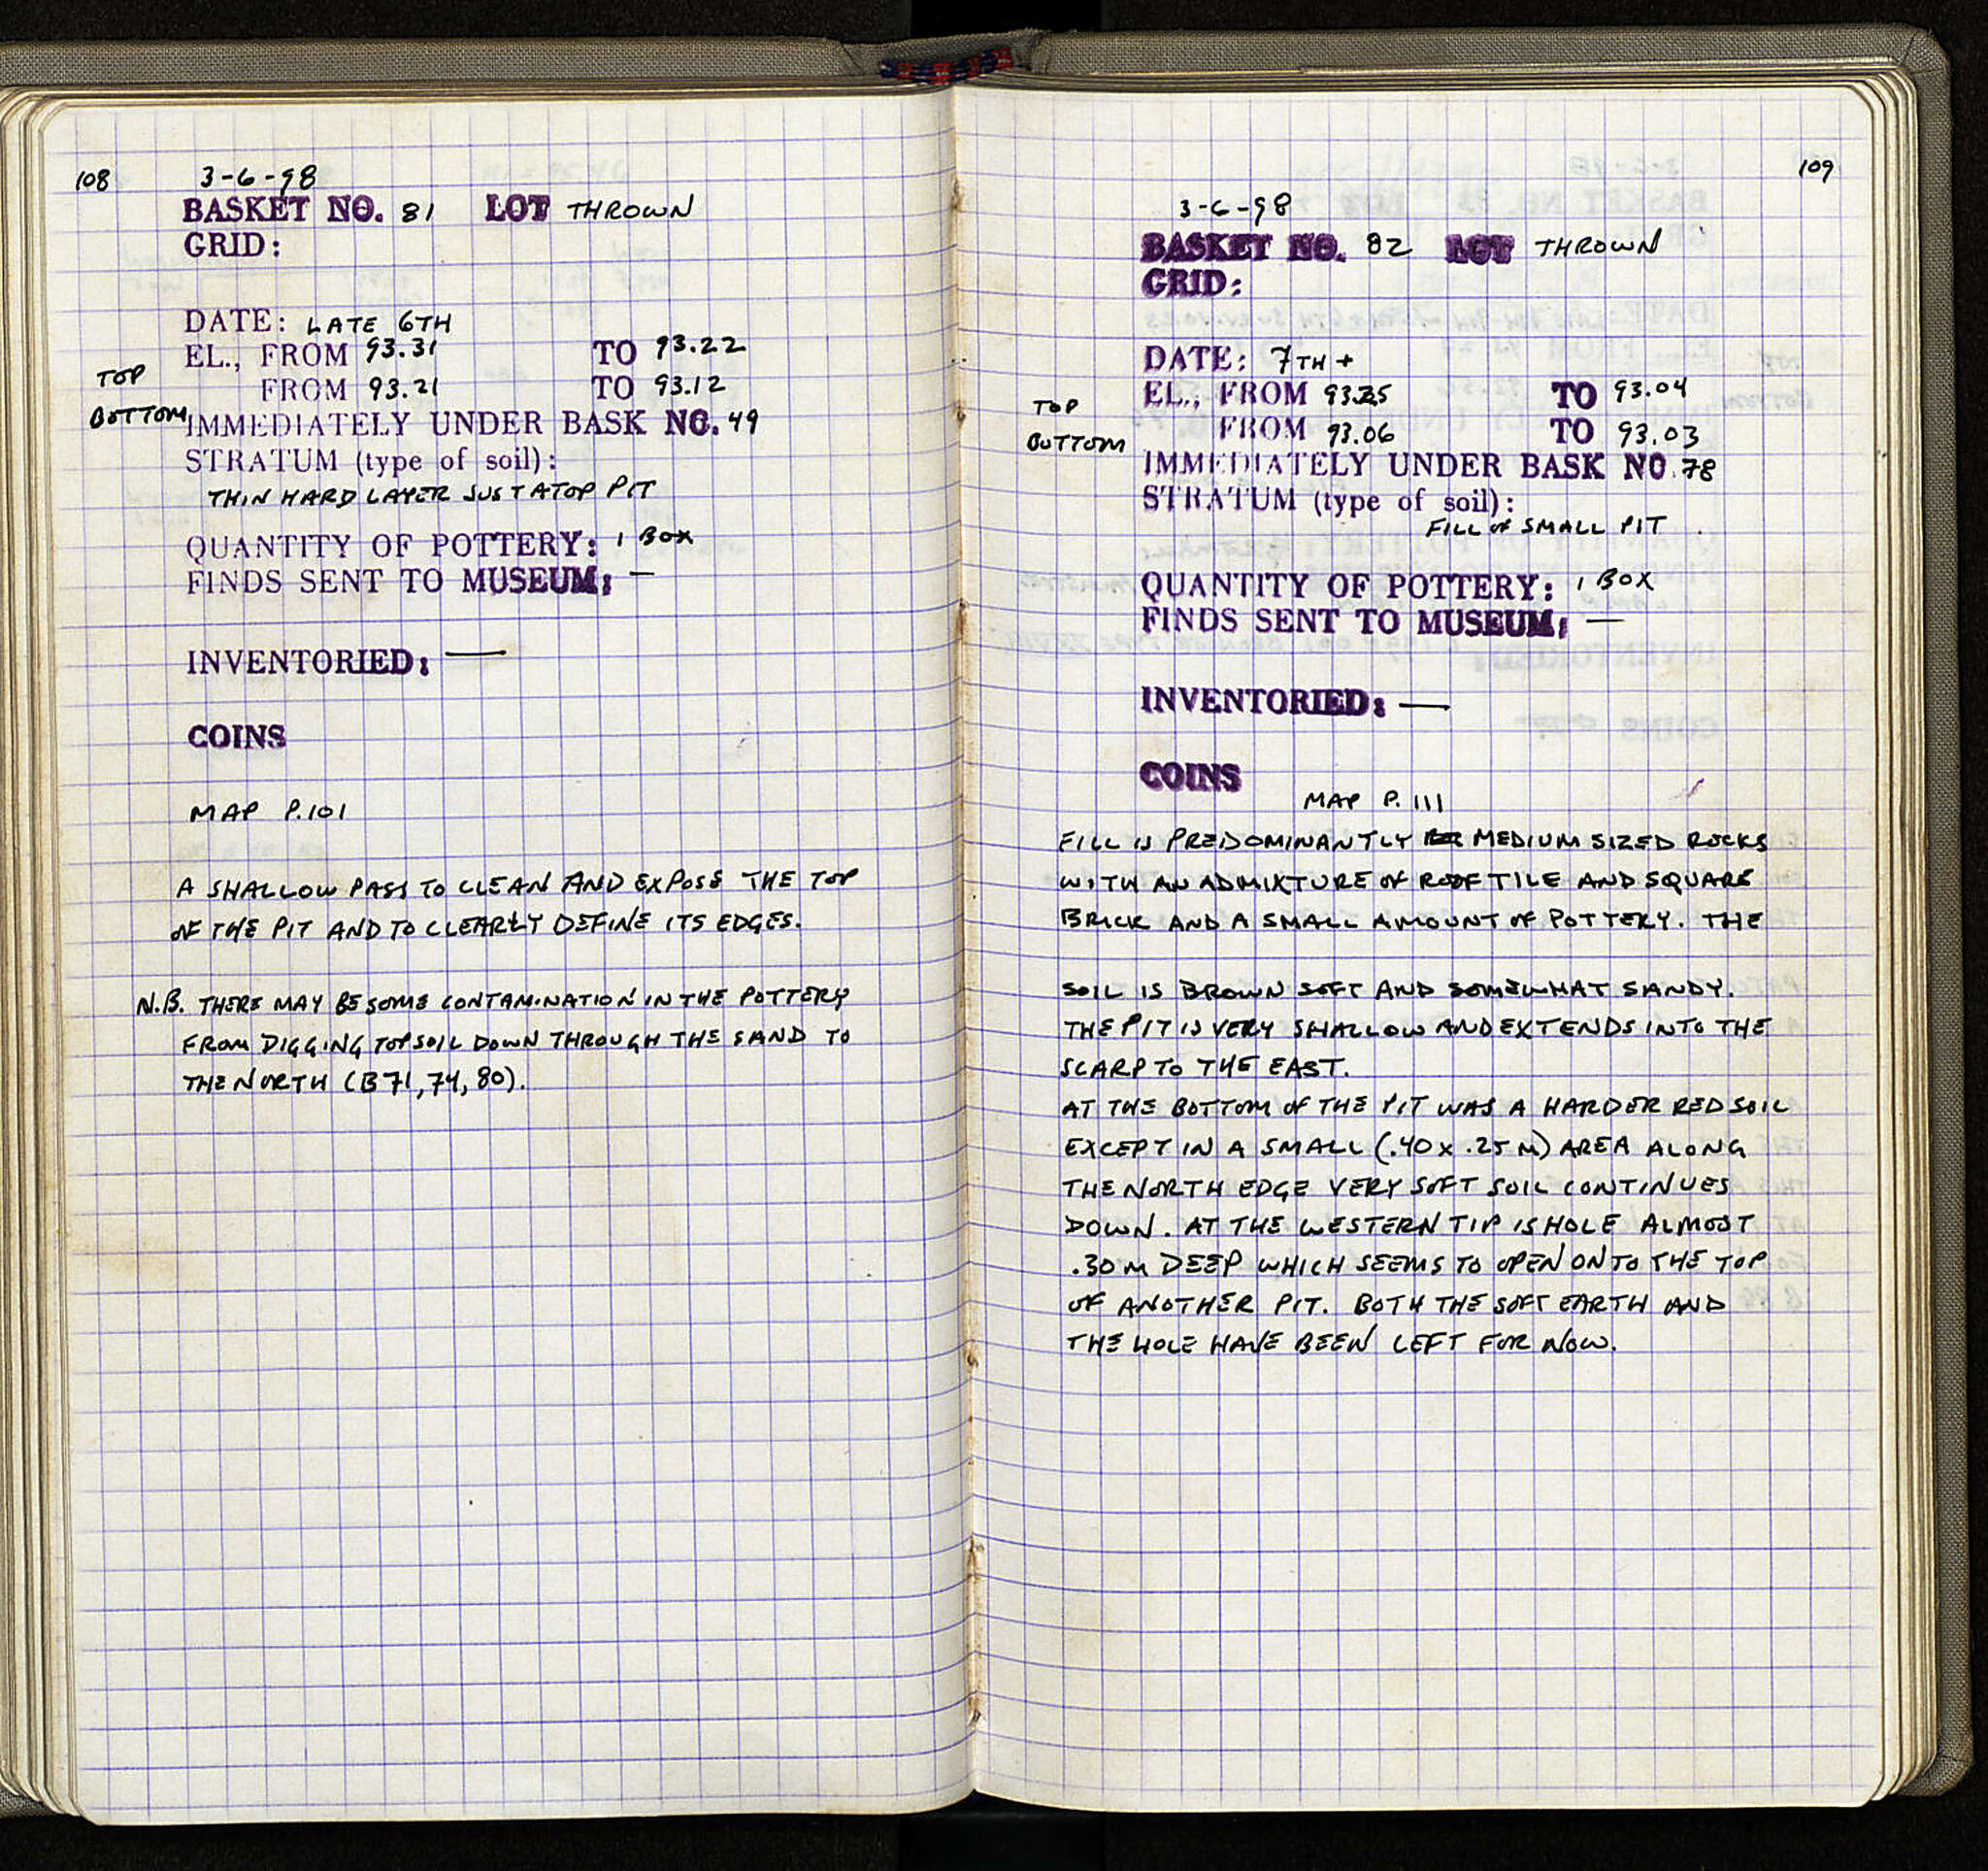 108
3-6-98
BASKET NO. 81 LOT THROWN
GRID:
DATE: LATE 6TH
TOP EL., FROM 93.31 TO 93.22
BOTTOM FROM 93.21 TO 93.12
IMMEDIATELY UNDER BASK NO. 49
STRATUM (type of soil):
THIN HARD LAYER JUST ATOP PIT
QUANTITY OF POTTERY: 1 BOX
FINDS SENT TO MUSEUM: —
INVENTORIED: —
COINS
MAP P.101
A SHALLOW PASS TO CLEAN AND EXPOSE THE TOP
OF THE PIT AND TO CLEARLY DEFINE ITS EDGES.
N.B. THERE MAY BE SOME CONTAMINATION IN THE POTTERY
FROM DIGGING TOPSOIL DOWN THROUGH THE SAND TO
THE NORTH (B71, 74, 80).
109
3-6-98
BASKET NO. 82 LOT THROWN
GRID:
DATE: 7TH +
TOP EL., FROM 93.25 TO 93.04
BOTTOM FROM 93.06 TO 93.03
IMMEDIATELY UNDER BASK NO. 78
STRATUM (type of soil):
FILL OF SMALL PIT
QUANTITY OF POTTERY: 1 BOX
FINDS SENT TO MUSEUM: —
INVENTORIED: —
COINS
MAP P. 111
FILL IS PREDOMINANTLY MEDIUM SIZED ROCKS
WITH AN ADMIXTURE OF ROOF TILE AND SQUARE
BRICK AND A SMALL AMOUNT OF POTTERY. THE
SOIL IS BROWN SOFT AND SOMEWHAT SANDY.
THE PIT IS VERY SHALLOW AND EXTENDS INTO THE
SCARP TO THE EAST.
AT THE BOTTOM OF THE PIT WAS A HARDER RED SOIL
EXCEPT IN A SMALL (.40 x .25 M) AREA ALONG
THE NORTH EDGE VERY SOFT SOIL CONTINUES
DOWN. AT THE WESTERN TIP IS HOLE ALMOST
.30 M DEEP WHICH SEEMS TO OPEN ONTO THE TOP
OF ANOTHER PIT. BOTH THE SOFT EARTH AND
THE HOLE HAVE BEEN LEFT FOR NOW.